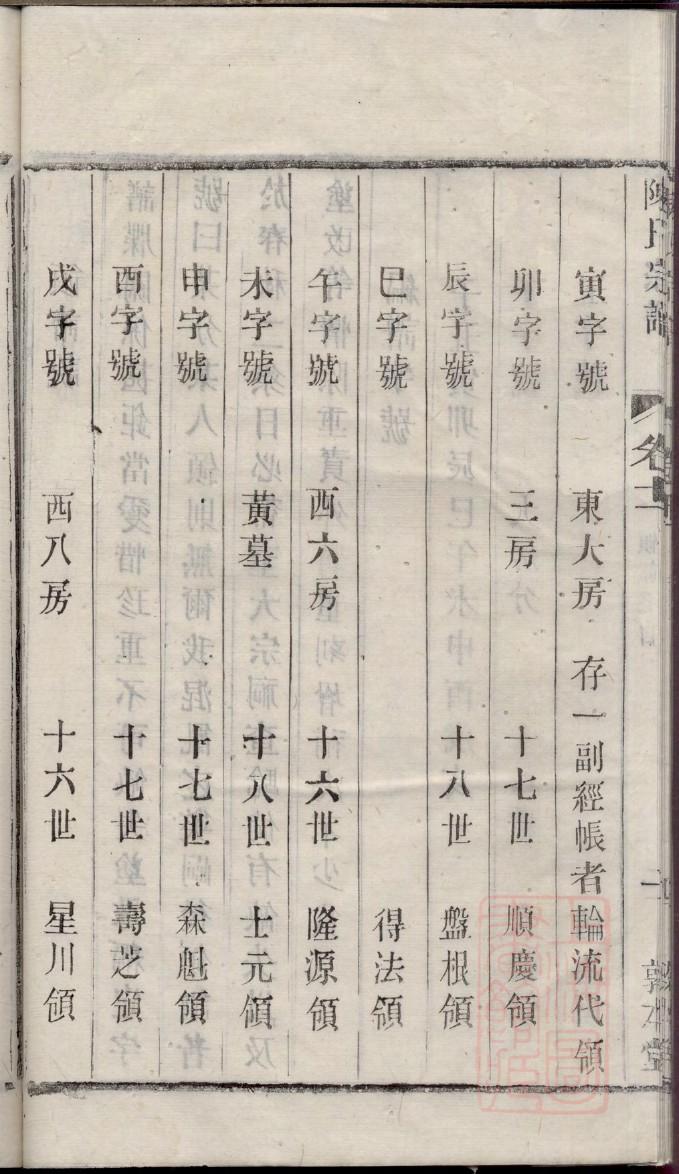 陳氏宗譜 卷十二 敦本堂
寅字號 東大房 存一副經帳者輪流代領
卯字號 三房 十七世 順慶領
辰字號 十八世 盤根領
巳字號 得法領
午字號 西六房 十六世 隆源領
未字號 黃墓 十八世 士元領
申字號 十七世 森魁領
酉字號 十七世 壽芝領
戌字號 西八房 十六世 星川領